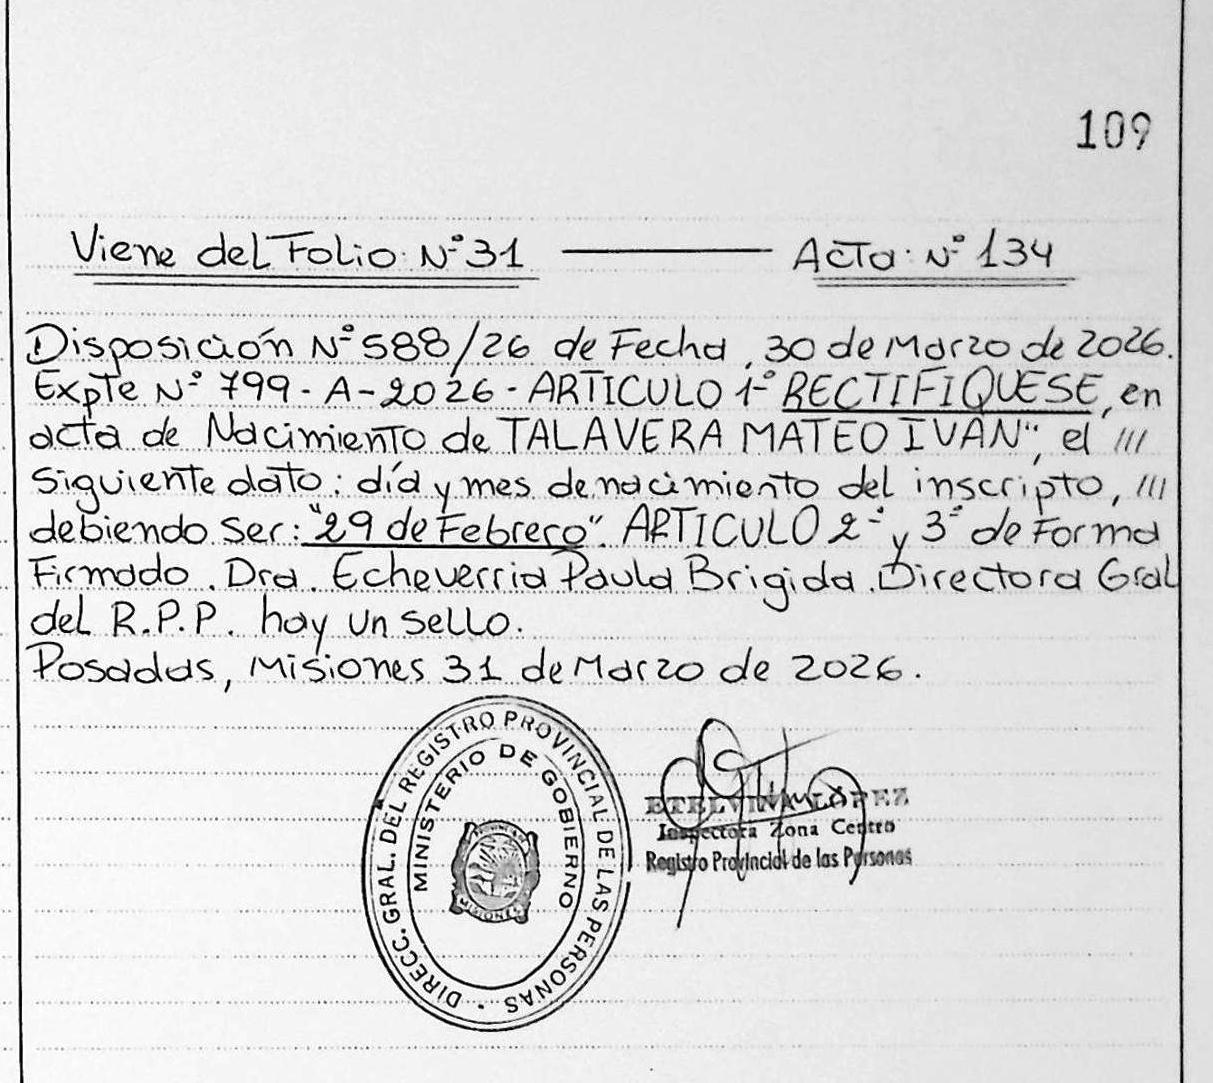 109
Viene del Folio: N° 31 ——— Acta: N° 134
Disposición N° 588/26 de Fecha, 30 de Marzo de 2026.
Expte N° 799-A-2026-ARTICULO 1° RECTIFIQUESE, en
acta de Nacimiento de TALAVERA MATEO IVAN", el ///
siguiente dato: día y mes de nacimiento del inscripto, ///
debiendo ser: "29 de Febrero". ARTICULO 2° y 3° de Forma
Firmado. Dra. Echeverria Paula Brigida. Directora Gral
del R.P.P. hay un sello.
Posadas, Misiones 31 de Marzo de 2026.
DIRECC. GRAL. DEL REGISTRO PROVINCIAL DE LAS PERSONAS
MINISTERIO DE GOBIERNO
MISIONES
ETELVINA LÓPEZ
Inspectora Zona Centro
Registro Provincial de las Personas